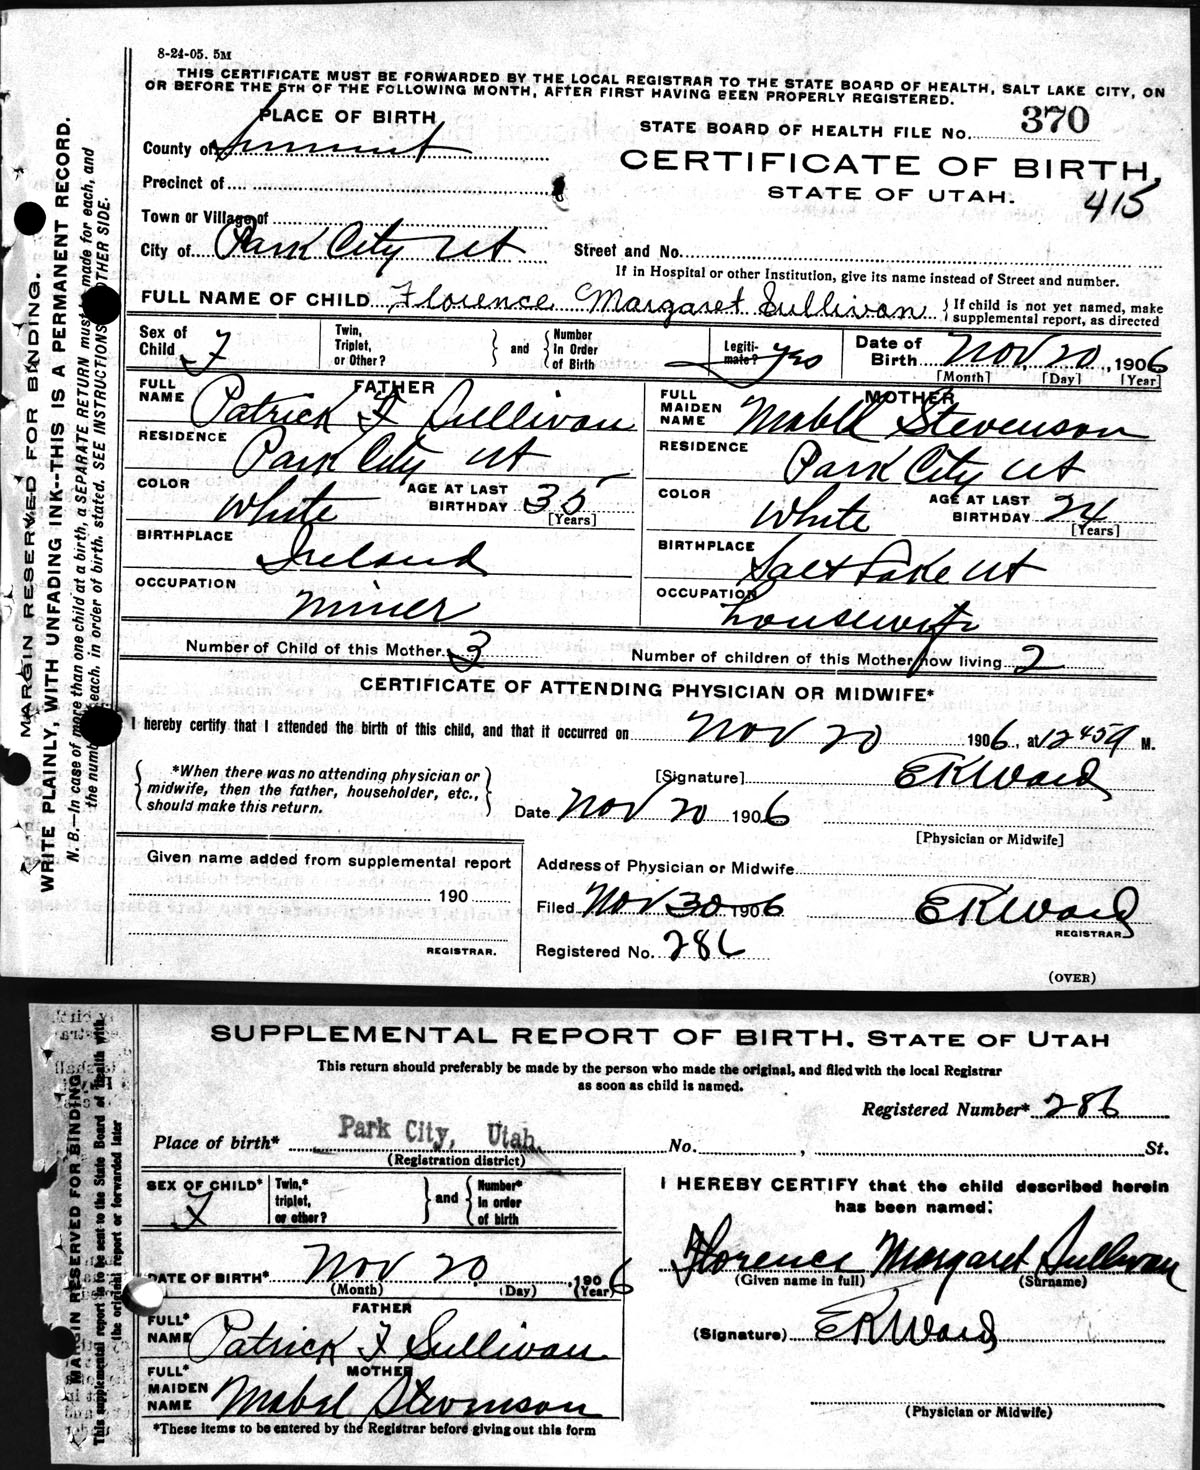 8-24-05. 5M
THIS CERTIFICATE MUST BE FORWARDED BY THE LOCAL REGISTRAR TO THE STATE BOARD OF HEALTH, SALT LAKE CITY, ON
OR BEFORE THE 5TH OF THE FOLLOWING MONTH, AFTER FIRST HAVING BEEN PROPERLY REGISTERED.
PLACE OF BIRTH
STATE BOARD OF HEALTH FILE No. 370
County of Summit
CERTIFICATE OF BIRTH,
Precinct of
STATE OF UTAH.
415
Town or Village of
City of Park City Ut Street and No.
If in Hospital or other Institution, give its name instead of Street and number.
FULL NAME OF CHILD Florence Margaret Sullivan { If child is not yet named, make supplemental report, as directed
Sex of Child F Twin, Triplet, or Other? } and { Number In Order of Birth Legiti-mate? yes Date of Birth Nov 20, 1906
[Month] [Day] [Year]
FATHER
FULL NAME Patrick F Sullivan
RESIDENCE Park City Ut
COLOR White AGE AT LAST BIRTHDAY 35 [Years]
BIRTHPLACE Ireland
OCCUPATION Miner
MOTHER
FULL MAIDEN NAME Mabel Stevenson
RESIDENCE Park City Ut
COLOR White AGE AT LAST BIRTHDAY 24 [Years]
BIRTHPLACE Salt Lake Ut
OCCUPATION Housewife
Number of Child of this Mother 3 Number of children of this Mother now living 2
CERTIFICATE OF ATTENDING PHYSICIAN OR MIDWIFE*
I hereby certify that I attended the birth of this child, and that it occurred on Nov 20 1906, at 12 45 a M.
{ *When there was no attending physician or midwife, then the father, householder, etc., should make this return. }
[Signature] E K Ward
Date Nov 20 1906
[Physician or Midwife]
Given name added from supplemental report
190
REGISTRAR.
Address of Physician or Midwife
Filed Nov 30 1906 E K Ward
REGISTRAR
Registered No. 286
(OVER)
MARGIN RESERVED FOR BINDING.
WRITE PLAINLY, WITH UNFADING INK--THIS IS A PERMANENT RECORD.
N. B.—In case of more than one child at a birth, a SEPARATE RETURN must be made for each, and
the number of each, in order of birth, stated. SEE INSTRUCTIONS OTHER SIDE.
SUPPLEMENTAL REPORT OF BIRTH, STATE OF UTAH
This return should preferably be made by the person who made the original, and filed with the local Registrar
as soon as child is named.
Registered Number* 286
Place of birth* Park City, Utah. No. , St.
(Registration district)
SEX OF CHILD* F Twin,* triplet, or other? } and { Number* in order of birth
DATE OF BIRTH* Nov 20, 1906
(Month) (Day) (Year)
FATHER
FULL* NAME Patrick F Sullivan
MOTHER
FULL* MAIDEN NAME Mabel Stevenson
*These items to be entered by the Registrar before giving out this form
I HEREBY CERTIFY that the child described herein
has been named:
Florence Margaret Sullivan
(Given name in full) (Surname)
(Signature) E K Ward
(Physician or Midwife)
MARGIN RESERVED FOR BINDING
This supplemental report is to be sent to the State Board of Health with
the original report or forwarded later